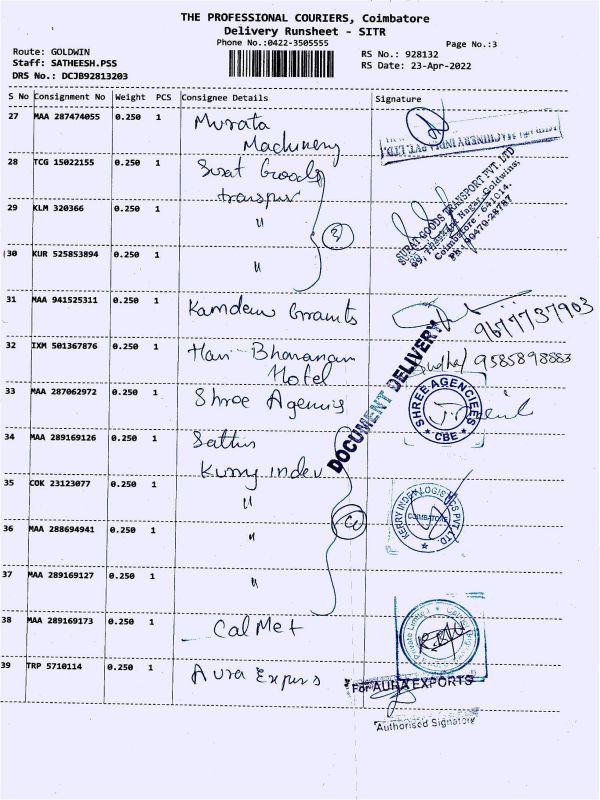 THE PROFESSIONAL COURIERS, Coimbatore
Delivery Runsheet - SITR
Phone No.:0422-3505555
Page No.:3
Route: GOLDWIN
RS No.: 928132
Staff: SATHEESH.PSS
RS Date: 23-Apr-2022
DRS No.: DCJB92813203
S No Consignment No Weight PCS Consignee Details Signature
27 MAA 287474055 0.250 1 Murata
Machinery
MACHINERY INDIA PVT. LTD.
28 TCG 15022155 0.250 1 Surat Goods
transpur
SURAT GOODS TRANSPORT PVT. LTD
99, Thankka Nagar, Goldwins,
Coimbatore - 641014.
Ph: 90479-28787
29 KLM 320366 0.250 1 "
3
30 KUR 525853894 0.250 1 "
31 MAA 941525311 0.250 1 Kamdew Grants
9677737903
32 IXM 501367876 0.250 1 Hari Bhavanam
Hotel
9585898883
DOCUMENT DELIVERY
33 MAA 287062972 0.250 1 Shree Agenies
SHREE AGENCIEES
CBE
34 MAA 289169126 0.250 1 Sathis
Kurry indev
35 COK 23123077 0.250 1 "
KERRY INDEV LOGISTICS PVT. LTD.
COIMBATORE
36 MAA 288694941 0.250 1 "
37 MAA 289169127 0.250 1 "
38 MAA 289169173 0.250 1 CalMet
Private Limited
39 TRP 5710114 0.250 1 Aura Expors
For AURA EXPORTS
Authorised Signatory